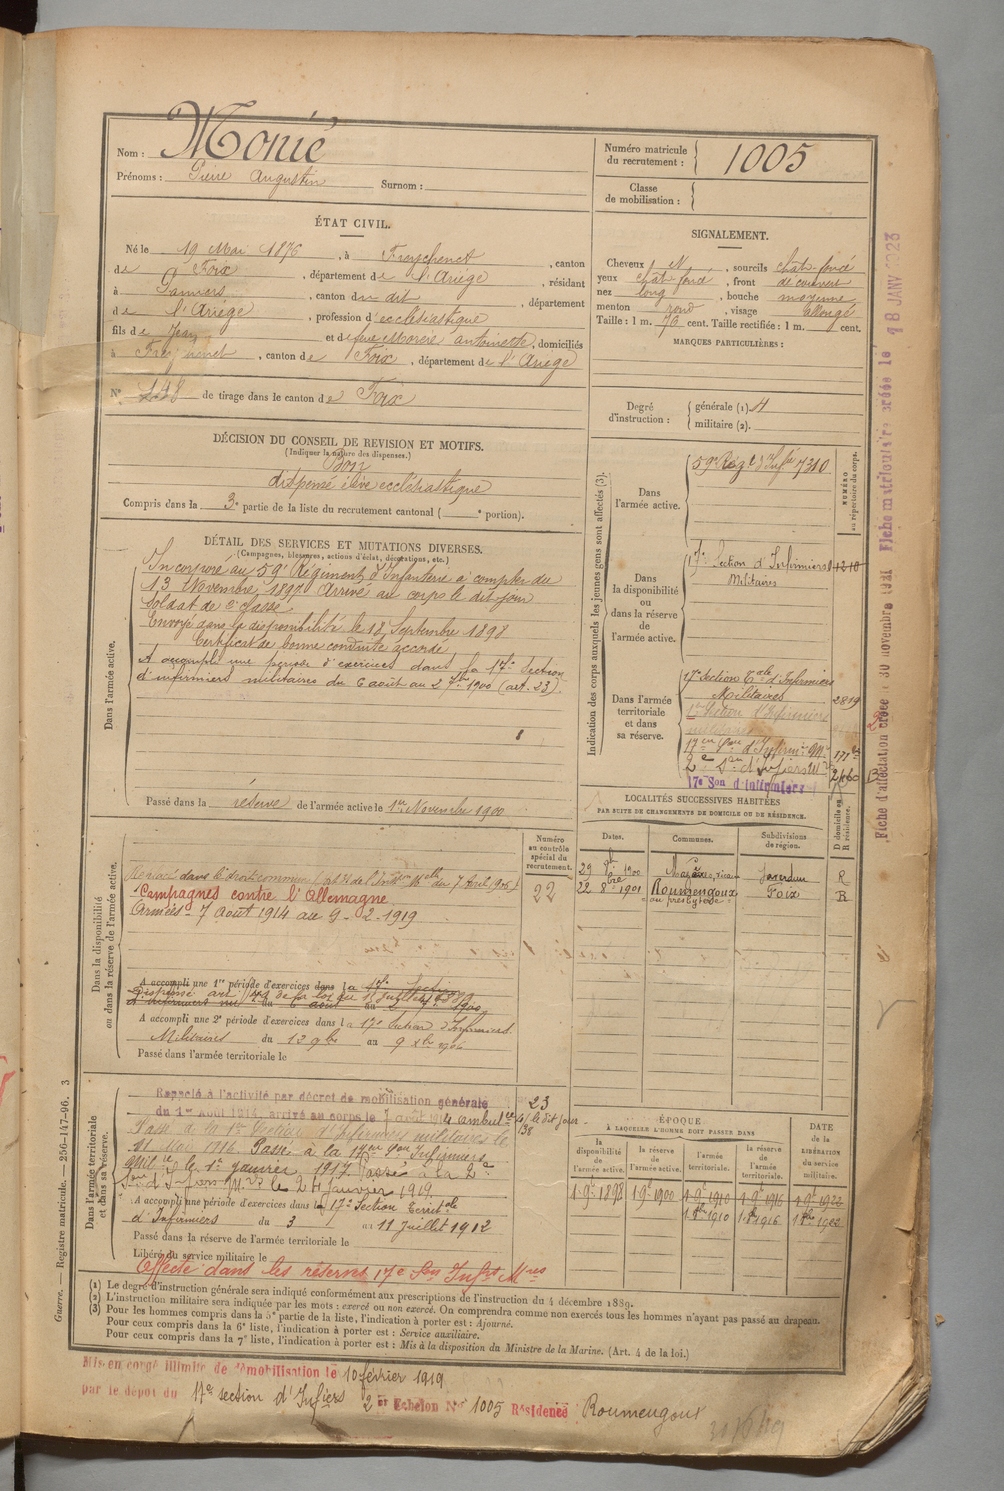 Nom : Monié
Prénoms : Pierre Augustin Surnom :
Numéro matricule du recrutement : 1005
Classe de mobilisation :
ÉTAT CIVIL.
Né le 19 Mai 1876, à Freychenet, canton
de Foix, département de l'Ariège, résidant
à Pamiers, canton du dit, département
de l'Ariège, profession d'ecclésiastique
fils de Jean et de feue Morère Antoinette, domiciliés
à Freychenet, canton de Foix, département de l'Ariège
N° 148 de tirage dans le canton de Foix
SIGNALEMENT.
Cheveux N, sourcils chât. foncé
yeux chât. foncé, front découvert
nez long, bouche moyenne
menton rond, visage allongé
Taille : 1 m. 70 cent. Taille rectifiée : 1 m. cent.
MARQUES PARTICULIÈRES :
Degré d'instruction : générale (1) 4
militaire (2).
DÉCISION DU CONSEIL DE REVISION ET MOTIFS.
(Indiquer la nature des dispenses.)
Bon
dispensé élève ecclésiastique
Compris dans la 3e partie de la liste du recrutement cantonal ( e portion).
DÉTAIL DES SERVICES ET MUTATIONS DIVERSES.
(Campagnes, blessures, actions d'éclat, décorations, etc.)
Dans l'armée active.
Incorporé au 59e Régiment d'Infanterie à compter du
13 Novembre 1897. Arrivé au corps le dit jour
soldat de 2e classe
Envoyé dans la disponibilité le 18 Septembre 1898
Certificat de bonne conduite accordé
A accompli une période d'exercices dans la 17e Section
d'infirmiers militaires du 6 août au 2 7bre 1900 (art. 23).
Passé dans la réserve de l'armée active le 1er Novembre 1900
Indication des corps auxquels les jeunes gens sont affectés (3).
NUMÉRO au répertoire du corps.
Dans l'armée active.
59e Régt d'Infie 7310
Dans la disponibilité ou dans la réserve de l'armée active.
17e Section d'Infirmiers 1210
Militaires
Dans l'armée territoriale et dans sa réserve.
17e Section Tale d'Infirmiers
Militaires 2819
17e Son d'infirmiers
LOCALITÉS SUCCESSIVES HABITÉES
PAR SUITE DE CHANGEMENTS DE DOMICILE OU DE RÉSIDENCE.
Dates. Communes. Subdivisions de région. D domicile ou R résidence.
29 1900 Mazères Saverdun R
22 8bre 1901 Roumengoux Foix R
au presbytère
Dans la disponibilité ou dans la réserve de l'armée active.
Numéro au contrôle spécial du recrutement.
22
Campagnes contre l'Allemagne
Armées - 7 Août 1914 au 9-2-1919
A accompli une 1re période d'exercices dans la 17e Section
d'infirmiers du 6 août au 1900
A accompli une 2e période d'exercices dans la 17e Section d'Infirmiers
Militaires du 12 9bre au 9 Xbre
Passé dans l'armée territoriale le
Dans l'armée territoriale et dans sa réserve.
Rappelé à l'activité par décret de mobilisation générale 23
du 1er Août 1914, arrivé au corps le 7 août 1914
Passé à la 1re Section d'Infirmiers militaires le
11 Mai 1916. Passé à la 17e Son Infirmiers
Milres le 1er janvier 1917. Passé à la 2e
Son d'Infirm Mres le 24 janvier 1919.
A accompli une période d'exercices dans la 17e Section Territale
d'Infirmiers du 3 au 11 Juillet 1912
Passé dans la réserve de l'armée territoriale le
Libéré du service militaire le
Affecté dans les réserves 17e Son Infirs Mres
ÉPOQUE
A LAQUELLE L'HOMME DOIT PASSER DANS
la disponibilité de l'armée active. la réserve de l'armée active. l'armée territoriale. la réserve de l'armée territoriale. DATE de la LIBÉRATION du service militaire.
1-9e 1898 1-9e 1900 1-9e 1910 1-9e 1916 1-9e 1922
1 8bre 1910 1 8bre 1916 1 8bre 1922
(1) Le degré d'instruction générale sera indiqué conformément aux prescriptions de l'instruction du 4 décembre 1889.
(2) L'instruction militaire sera indiquée par les mots : exercé ou non exercé. On comprendra comme non exercés tous les hommes n'ayant pas passé au drapeau.
(3) Pour les hommes compris dans la 5e partie de la liste, l'indication à porter est : Ajourné.
Pour ceux compris dans la 6e liste, l'indication à porter est : Service auxiliaire.
Pour ceux compris dans la 7e liste, l'indication à porter est : Mis à la disposition du Ministre de la Marine. (Art. 4 de la loi.)
Mis en congé illimité de démobilisation le 10 février 1919
par le dépôt du 17e section d'Infiers 2e Echelon No 1005 Résidence Roumengoux
Guerre. — Registre matricule. — 256-147-96. 3
Fiche d'affectation créée le 30 novembre 1921 Fiche matriculaire créée le 18 JANV 1923